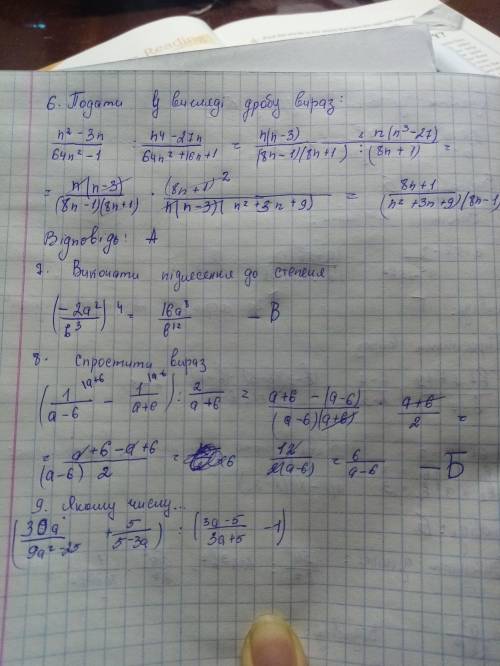 Reading
6. Подати у вигляді дробу вираз:
(n² - 3n)/(64n² - 1) : (n4 - 27n)/(64n² + 16n + 1) = n(n-3)/((8n-1)(8n+1)) : n(n³-27)/(8n+1) =
= n(n-3)/((8n-1)(8n+1)) · (8n+1)²/(n(n-3)(n²+3n+9)) = (8n+1)/((n²+3n+9)(8n-1))
Відповідь: А
7. Виконати піднесення до степеня
(-2a²/b³)⁴ = 16a⁸/b¹² - В
8. Спростити вираз
(1/(a-6) - 1/(a+6)) : 2/(a+6) = (a+6-(a-6))/((a-6)(a+6)) · (a+6)/2 =
= (a+6-a+6)/((a-6) 2) = 12/(2(a-6)) = 6/(a-6) - Б
9. Якому числу...
(30a/(9a²-25) + 5/(5-3a)) : ((3a-5)/(3a+5) - 1)